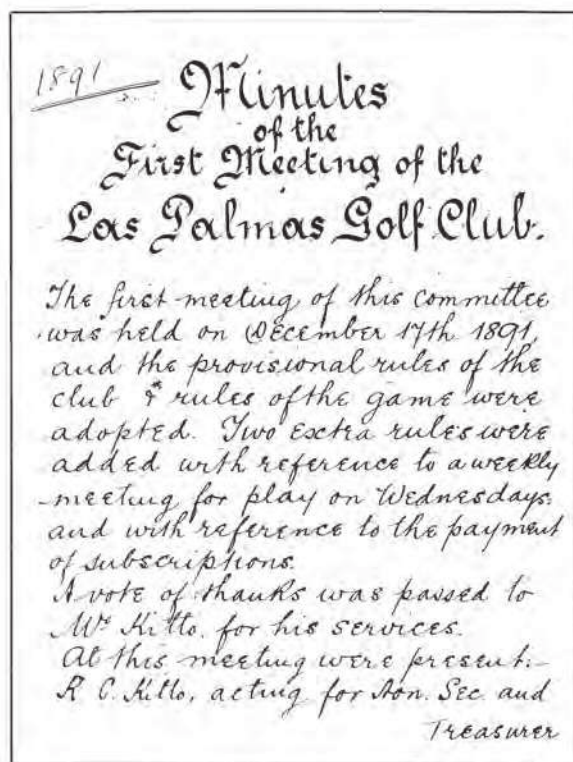 1891
Minutes
of the
First Meeting of the
Las Palmas Golf Club.
The first meeting of this committee
was held on December 17th 1891,
and the provisional rules of the
club & rules of the game were
adopted. Two extra rules were
added with reference to a weekly
meeting for play on Wednesdays.
and with reference to the payment
of subscriptions.
A vote of thanks was passed to
Mr Kitto. for his services.
At this meeting were present:-
R C. Kitto, acting for Hon. Sec. and
Treasurer